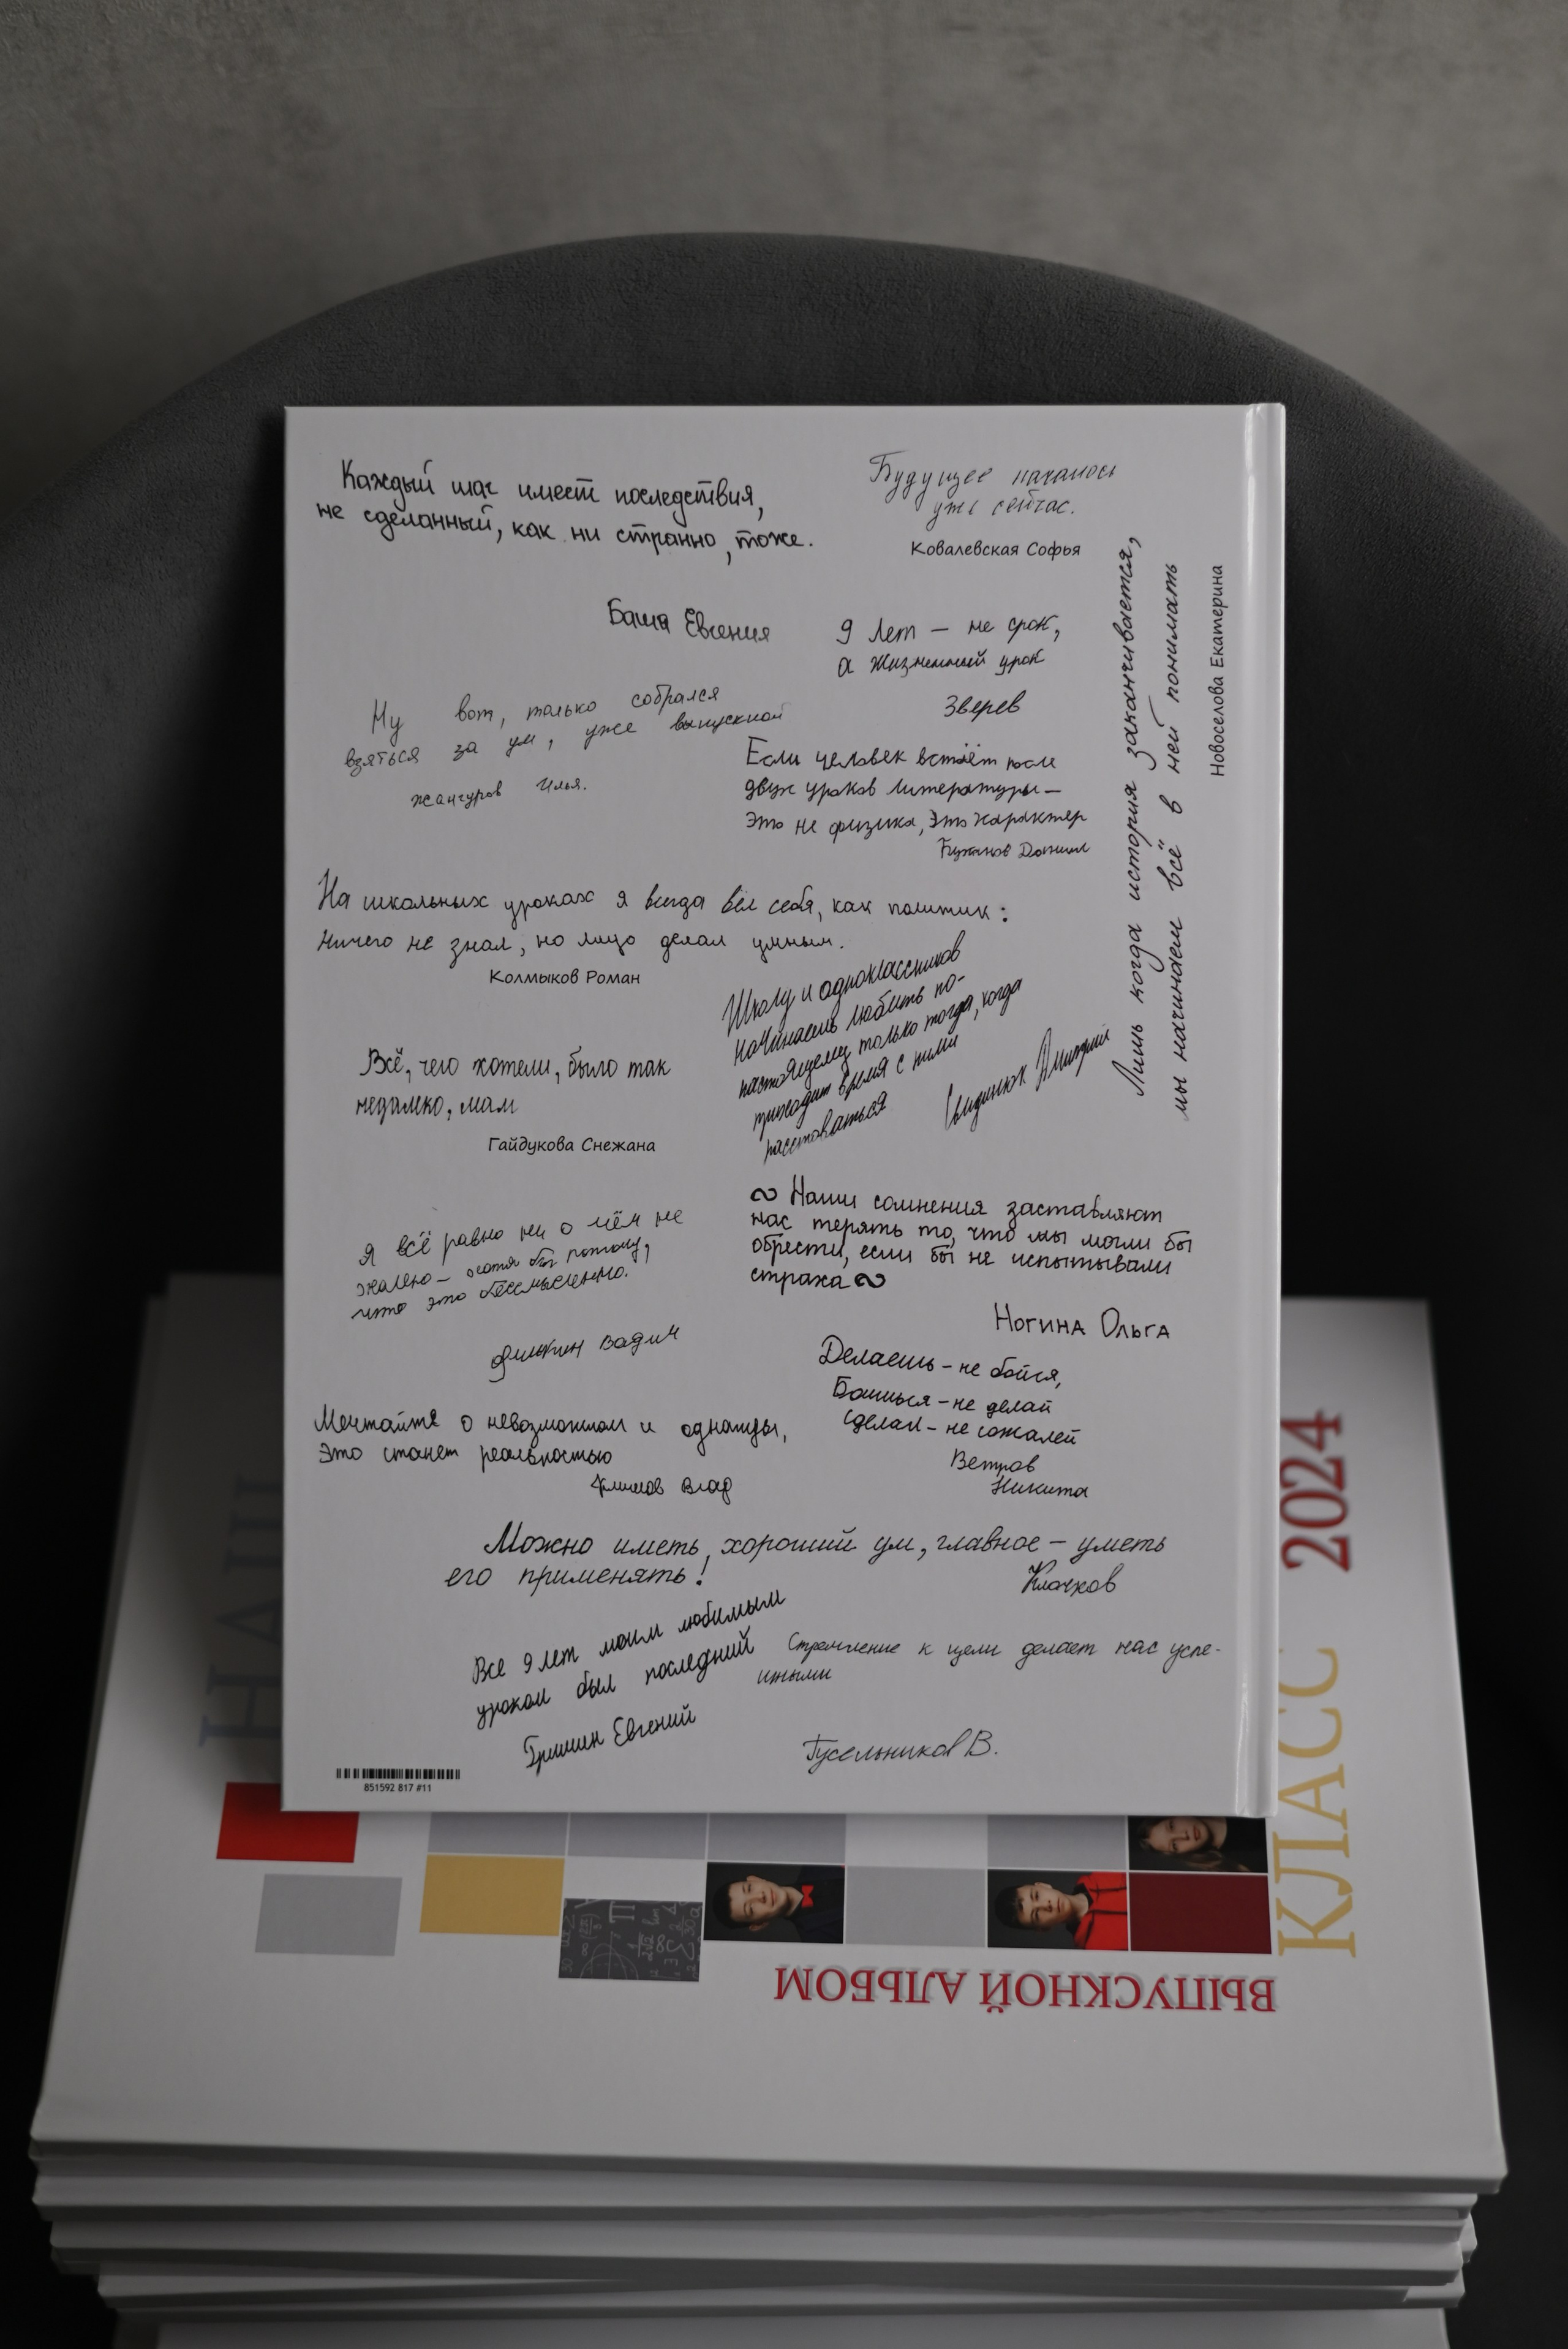 Каждый шаг имеет последствия,
не сделанный, как ни странно, тоже.
Баша Евгения
Будущее началось
уже сейчас.
Ковалевская Софья
9 лет — не срок,
а жизненный урок
Зверев
Ну вот, только собрался
взяться за ум, уже выпускной
Жангуров Илья.
Если человек встаёт после
двух уроков литературы —
это не физика, это характер
Даниил
На школьных уроках я всегда вёл себя, как политик:
Ничего не знал, но лицо делал умным.
Колмыков Роман
Школу и одноклассников
начинаешь любить по-
настоящему только тогда, когда
приходит время с ними
расставаться
Дмитрий
Лишь когда история заканчивается,
мы начинаем всё в ней понимать
Новоселова Екатерина
Всё, чего хотели, было так
недалеко, мам
Гайдукова Снежана
∾ Наши сомнения заставляют
нас терять то, что мы могли бы
обрести, если бы не испытывали
страха ∾
Ногина Ольга
Я всё равно ни о чём не
жалею — хотя бы потому,
что это бессмысленно.
Вадим
Делаешь - не бойся,
Боишься - не делай
Сделал - не сожалей
Ветров
Никита
Мечтайте о невозможном и однажды,
это станет реальностью
Климов Влад
Можно иметь хороший ум, главное — уметь
его применять!
Клочков
Все 9 лет моим любимым
уроком был последний
Гришин Евгений
Стремление к цели делает нас успе-
шными
Гусельников В.
851592 817 #11
НАШ
КЛАСС 2024
ВЫПУСКНОЙ АЛЬБОМ